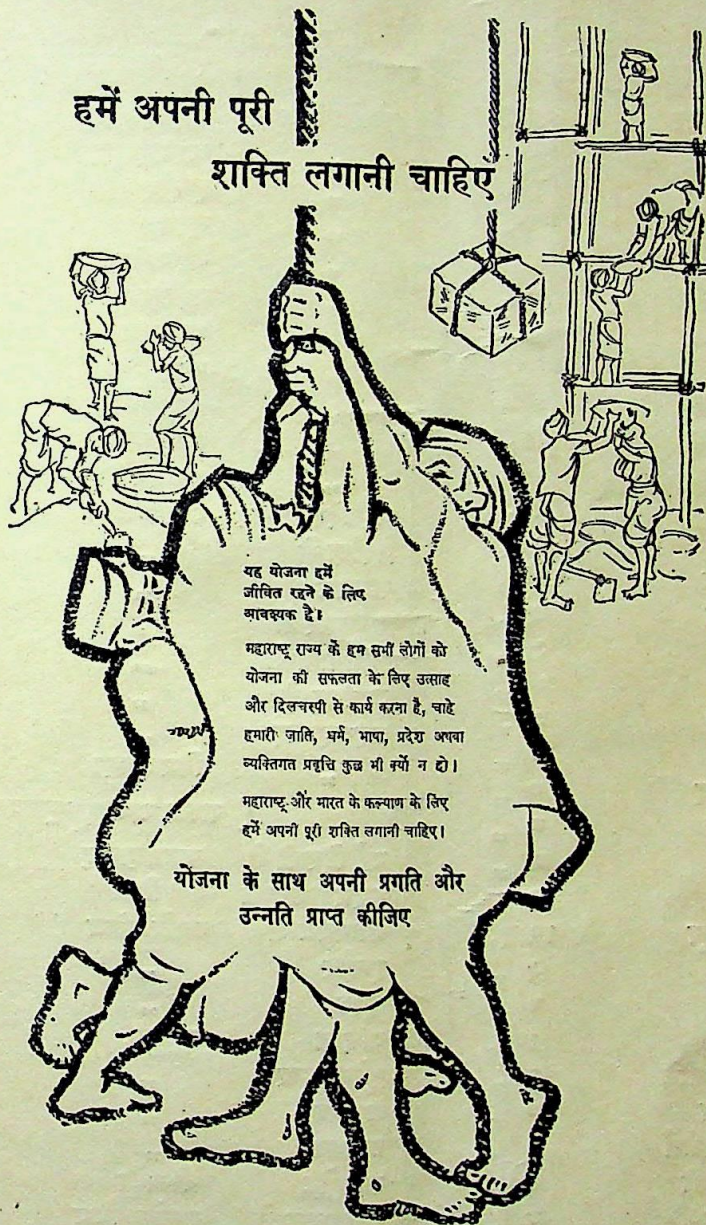 हमें अपनी पूरी
शक्ति लगानी चाहिए
यह योजना हमें
जीवित रहने के लिए
आवश्यक है।
महाराष्ट्र राज्य के हम सभी लोगों को
योजना की सफलता के लिए उत्साह
और दिलचस्पी से कार्य करना है, चाहे
हमारी जाति, धर्म, भाषा, प्रदेश अथवा
व्यक्तिगत प्रवृत्ति कुछ भी क्यों न हो।
महाराष्ट्र और भारत के कल्याण के लिए
हमें अपनी पूरी शक्ति लगानी चाहिए।
योजना के साथ अपनी प्रगति और
उन्नति प्राप्त कीजिए